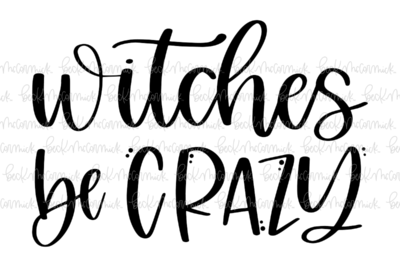 witches
be CRAZY